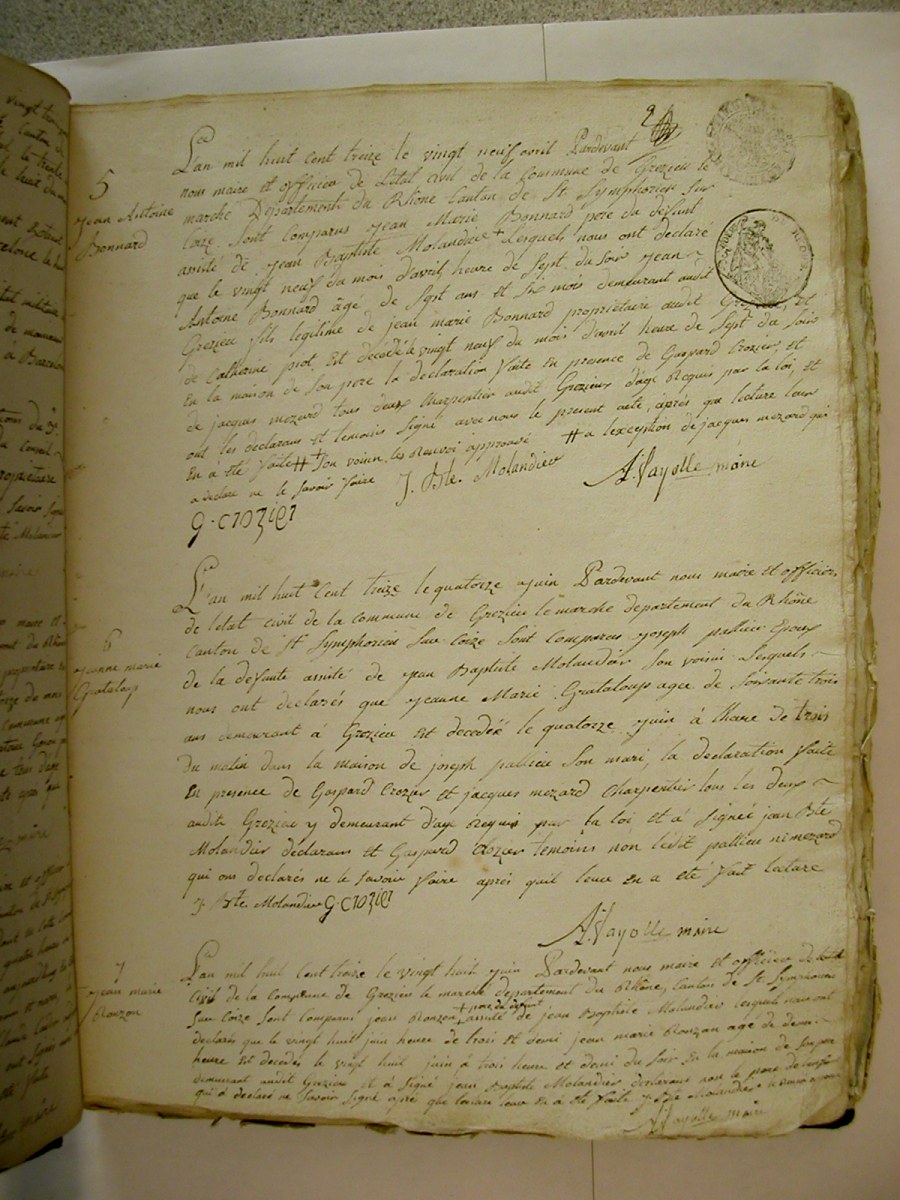 5
Jean Antoine
Bonnard
L'an mil huit cent treize le vingt neuf avril Pardevant
nous maire et officier de l'etat civil de la Commune de Grezieu le
marché Département du Rhône Canton de St Symphorien sur
Coize sont comparus Jean Marie Bonnard pere du défunt
assité de Jean Baptiste Molandier + Lesquels nous ont declaré
que le vingt neuf du mois d'avril heure de sept du soir jean
Antoine Bonnard âgé de sept ans et six mois demeurant audit
Grezieu fils legitime de jean marie Bonnard propriétaire audit Grezieu, et
de Catherine piot Est décédé le vingt neuf du mois d'avril heure de sept du soir
En la maison de son pere la déclaration faite En presence de Gaspard Crozier, et
de jacques mezard tous deux charpentier audit Grezieux d'age Requis par la loi, et
ont les déclarans et temoins signé avec nous le present acte, après que lecture leur
En a été faite # + son voisin, les Renvoi approuvé # a lexception de jacques mezard qui
a declare ne le savoir faire J. Bte. Molandier A. Fayolle maire
g. crozier
6
Jeanne marie
Grataloup
L'an mil huit Cent treize le quatorze juin Pardevant nous maire et officier
de letat civil de la commune de Grezieu le marche departement du Rhône
Canton de St Symphorien sur Coize sont comparus joseph pallieu Epoux
de la defunte assité de jean Baptiste Molandier son voisin Lesquels
nous ont declarés que jeanne Marie Grataloup agee de soixante trois
ans demeurant à Grezieu est decedée le quatorze juin à lheure de trois
du matin dans la maison de joseph pallieu son mari, la declaration faite
En presence de Gaspard Crozier et jacques mezard charpentier tous les deux
audite Grezieu y demeurant d'age Requis par la loi et à signée jean Bte
Molandier déclarans et Gaspard Crozier temoins non ledit pallieu ni mezard
qui ons declarés ne le savoir faire après quil leur en a été fait lecture
J. Bte. Molandier g. crozier
A. Fayolle maire
7
jean marie
Ronzon
L'an mil huit Cent treize le vingt huit juin Pardevant nous maire et officier de letat
civil de la Commune de Grezieu le marché departement du Rhône, Canton de St Symphorien
sur Coize sont comparus jean Ronzon + pere du defunt assité de jean Baptiste Molandier lesquels nous ont
declarés que le vingt huit juin heure de trois et demi jean marie Ronzon agé de demi
heure est decedés le vingt huit juin à trois heure et demi du soir En la maison de son pere
demeurant audit Grezieu et à signé jean Baptiste Molandier declarans non le pere
qui à declaré ne savoir signé après que lecture leur En a été faite J Bte Molandier
A. Fayolle maire